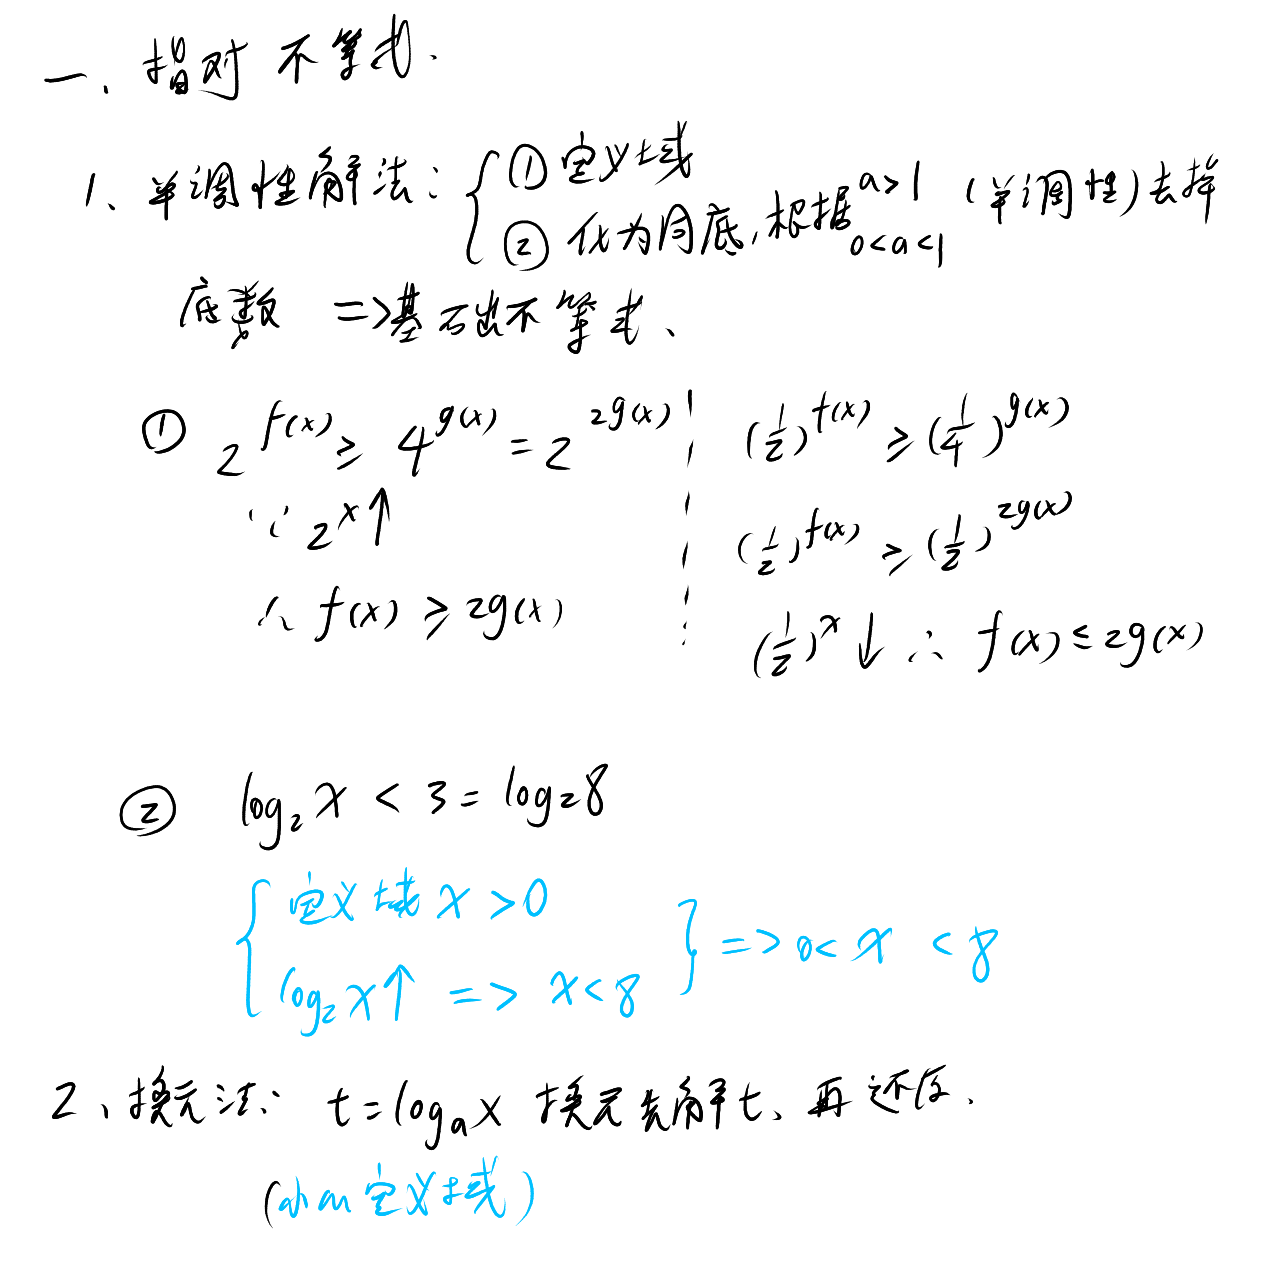 一、指对不等式.
1、单调性解法: { ① 定义域
② 化为同底, 根据 a>1 0<a<1 (单调性)去掉
底数 => 基础不等式、
① 2^{f(x)} ≥ 4^{g(x)} = 2^{2g(x)}
∵ 2^x ↑
∴ f(x) ≥ 2g(x)
(1/2)^{f(x)} ≥ (1/4)^{g(x)}
(1/2)^{f(x)} ≥ (1/2)^{2g(x)}
(1/2)^x ↓ ∴ f(x) ≤ 2g(x)
② log₂x < 3 = log₂8
{ 定义域 x>0
log₂x↑ => x<8 } => 0< x <8
2、换元法: t=logₐx 换元去解t、再还原.
定义域)